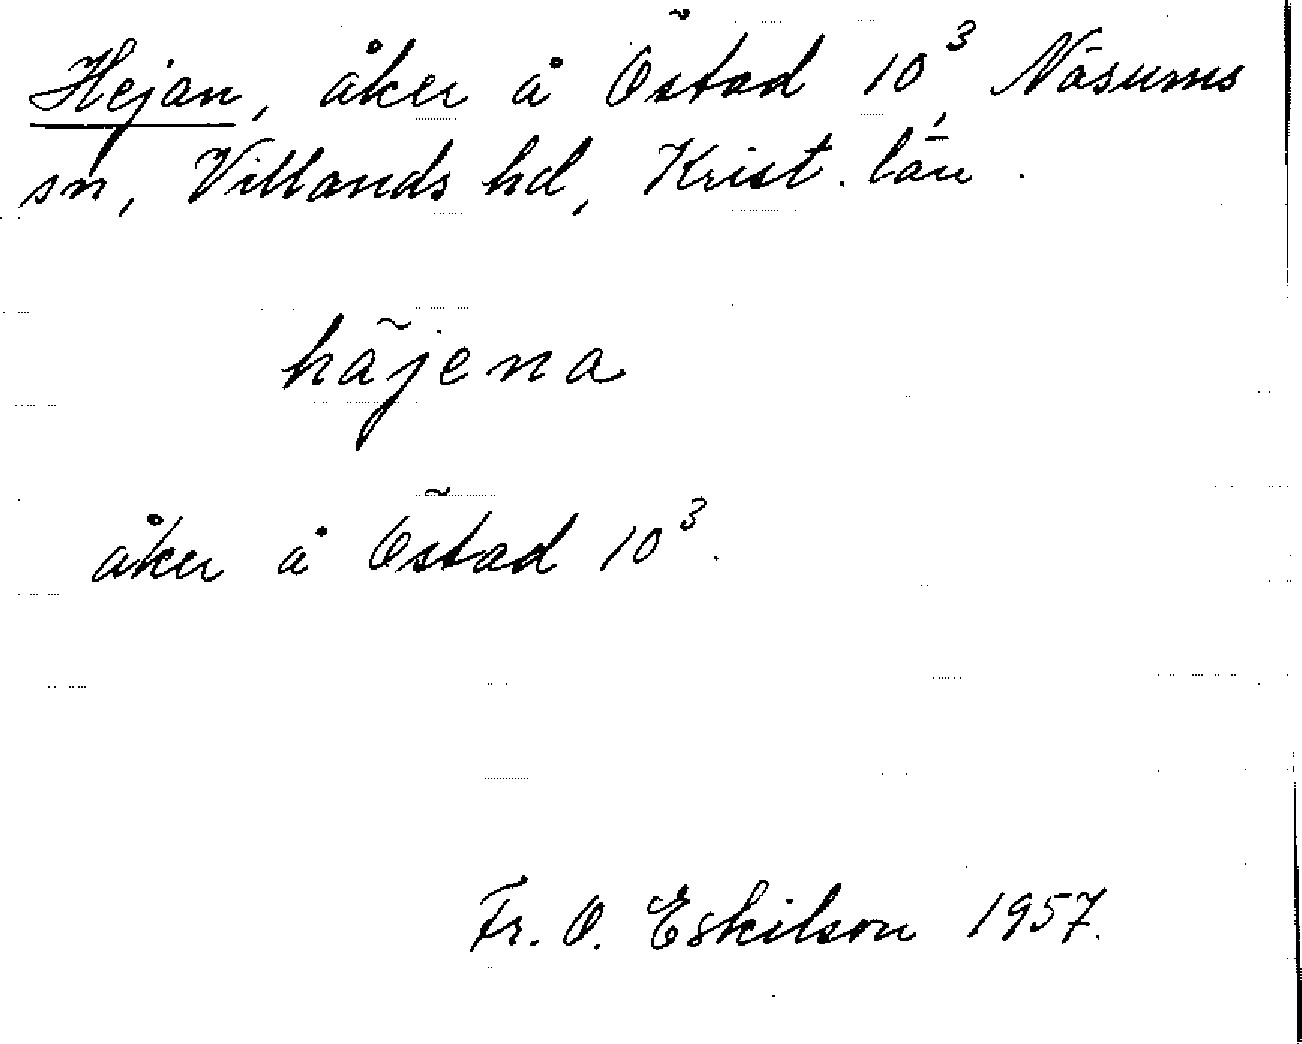 Hejan, åker å Östad 10³, Näsums
sn, Villands hd, Krist. län.
häjena
åker å Östad 10³.
Fr. O. Eskilson 1957.